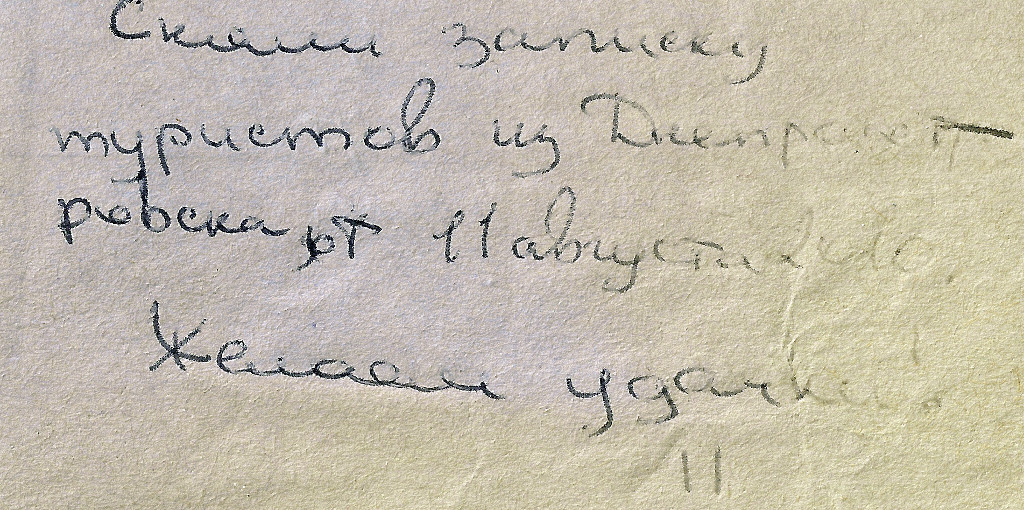 Сняли записку
туристов из Днепропет-
ровска от 11 августа 2010.
Желаем удачи!
11